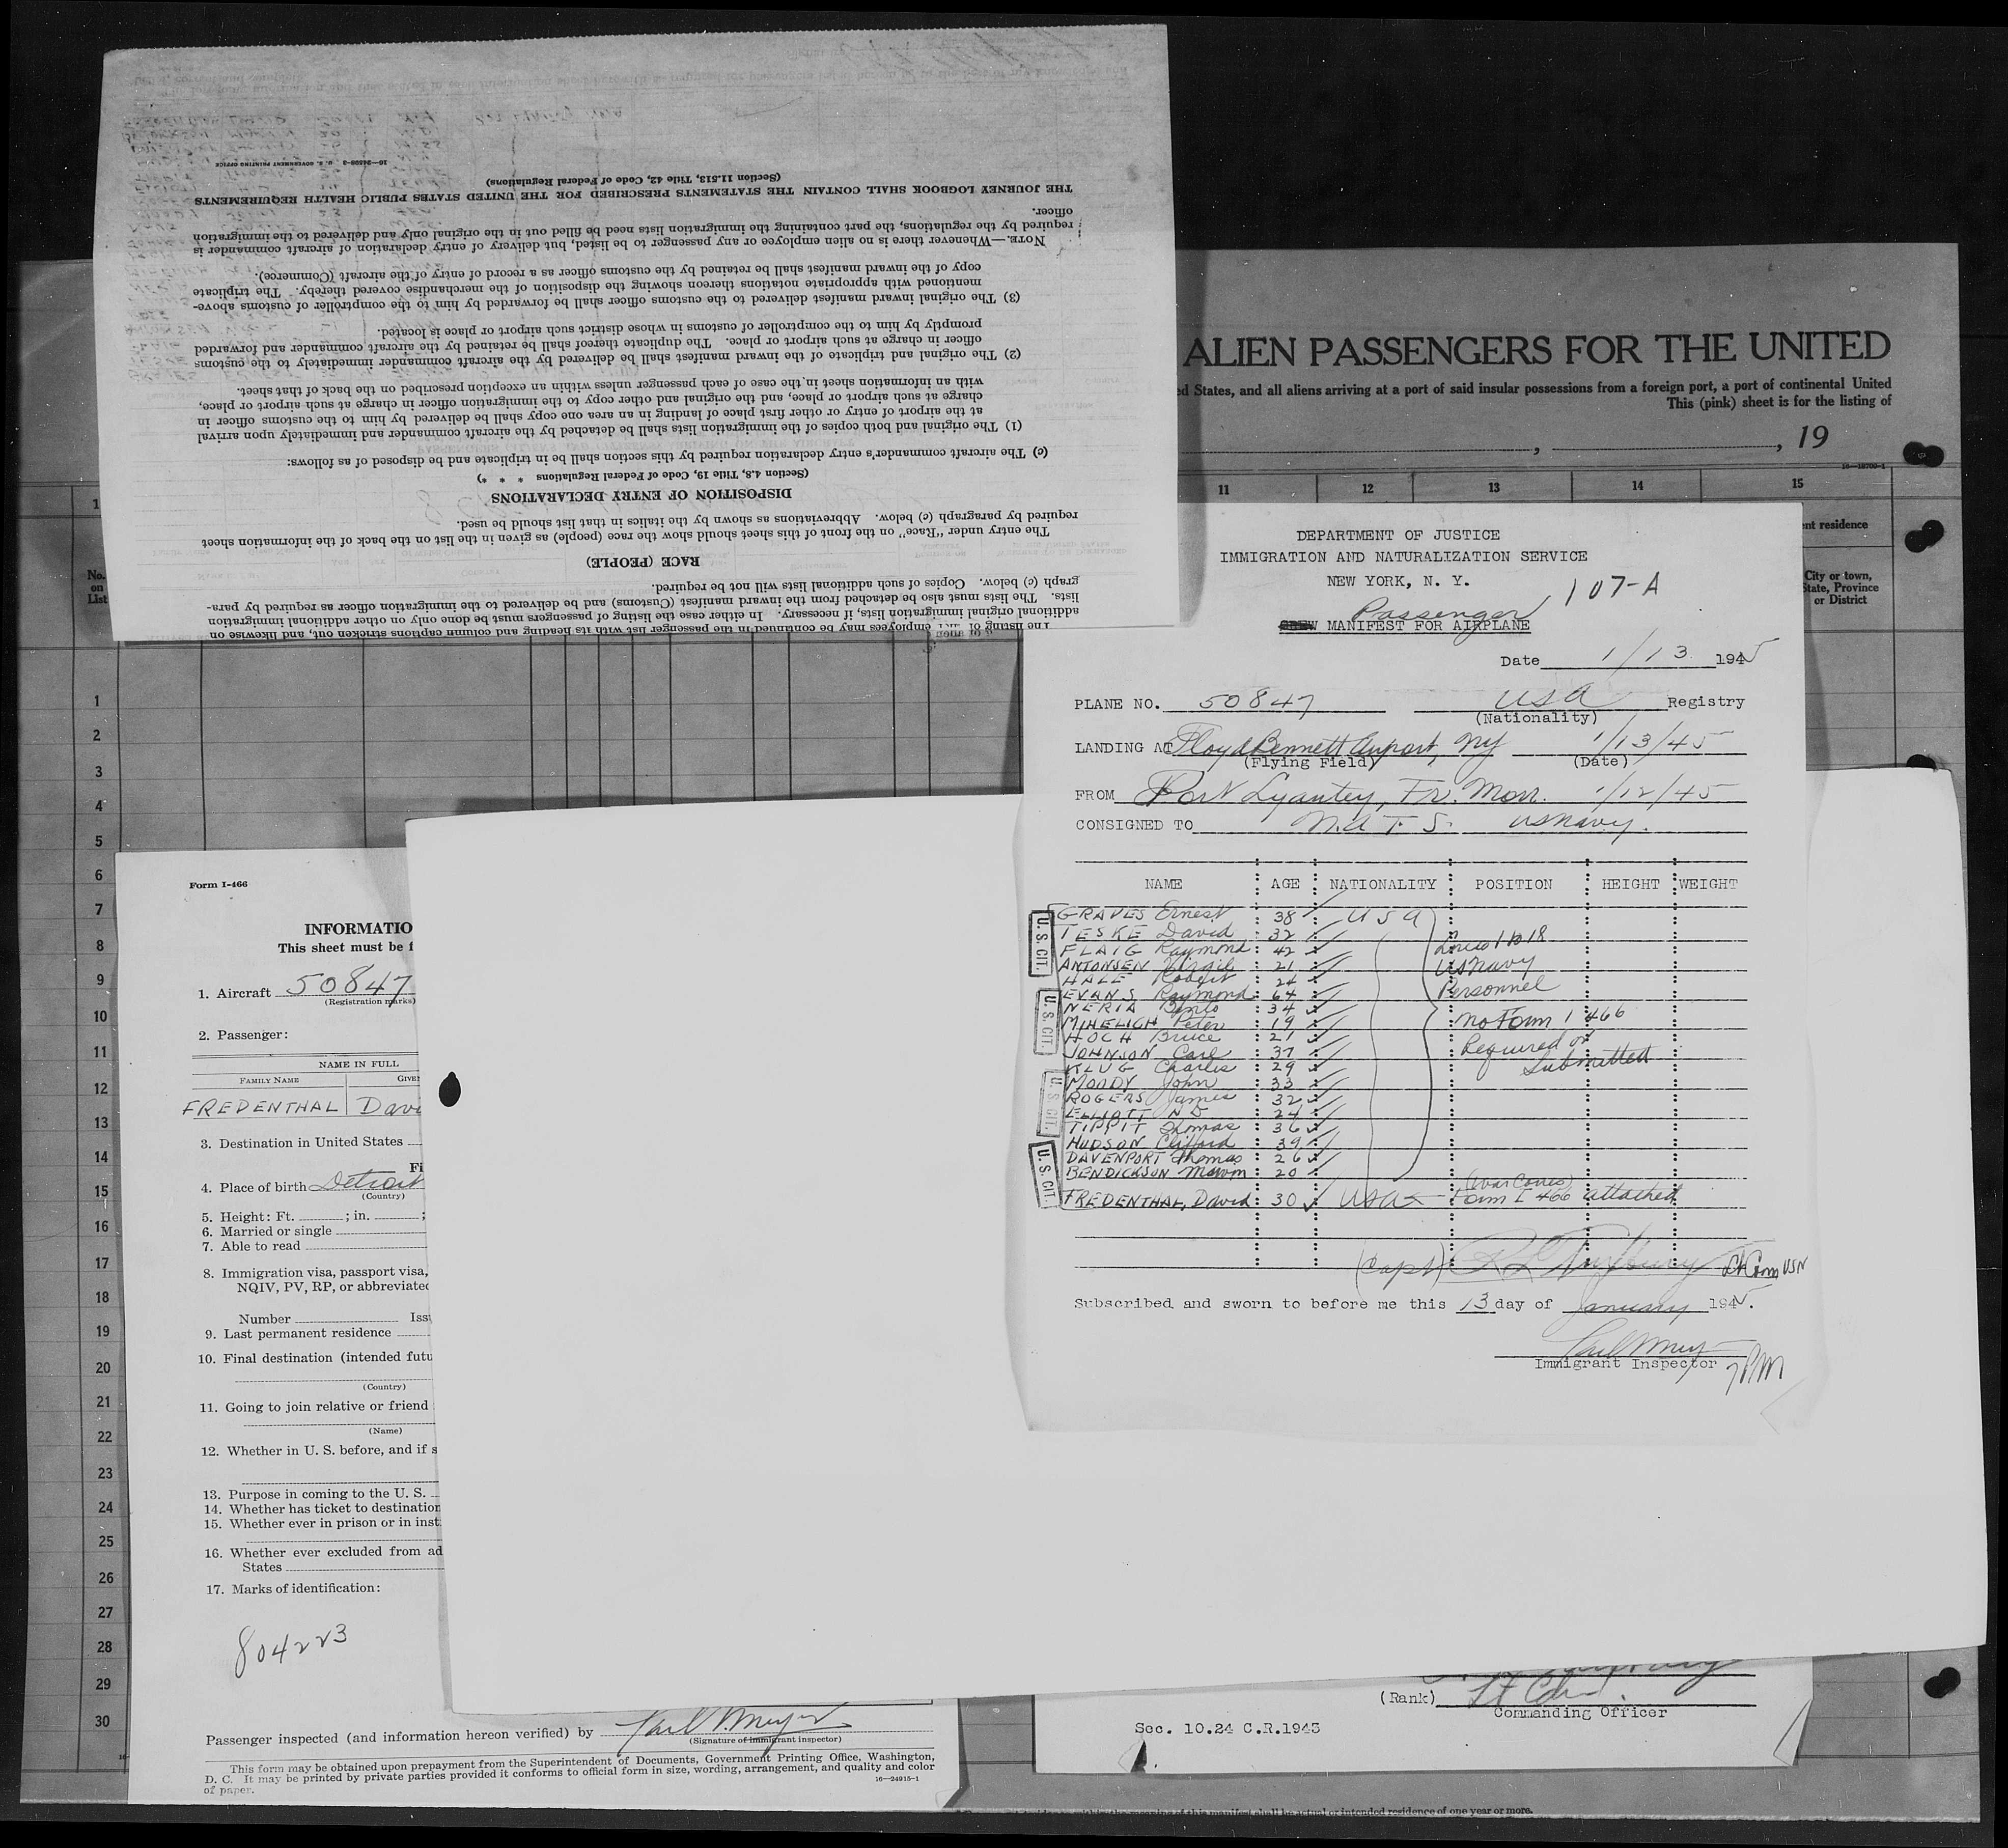 The listing of employees may be continued in the passenger list with its heading and column captions stricken out, and likewise on
additional original immigration lists, if necessary. In either case the listing of passengers must be done only on other additional immigration
lists. The lists must also be detached from the inward manifest (Customs) and be delivered to the immigration officer as required by para-
graph (c) below. Copies of such additional lists will not be required.
RACE (PEOPLE)
The entry under "Race" on the front of this sheet should show the race (people) as given in the list on the back of the information sheet
required by paragraph (c) below. Abbreviations as shown by the italics in that list should be used.
DISPOSITION OF ENTRY DECLARATIONS
(Section 4.8, Title 19, Code of Federal Regulations * * *)
(c) The aircraft commander's entry declaration required by this section shall be in triplicate and be disposed of as follows:
(1) The original and both copies of the immigration lists shall be detached by the aircraft commander and immediately upon arrival
at the airport of entry or other first place of landing in an area one copy shall be delivered by him to the customs officer in
charge at such airport or place, and the original and other copy to the immigration officer in charge at such airport or place,
with an information sheet in the case of each passenger unless within an exception prescribed on the back of that sheet.
(2) The original and triplicate of the inward manifest shall be delivered by the aircraft commander immediately to the customs
officer in charge at such airport or place. The duplicate thereof shall be retained by the aircraft commander and forwarded
promptly by him to the comptroller of customs in whose district such airport or place is located.
(3) The original inward manifest delivered to the customs officer shall be forwarded by him to the comptroller of customs above-
mentioned with appropriate notations thereon showing the disposition of the merchandise covered thereby. The triplicate
copy of the inward manifest shall be retained by the customs officer as a record of entry of the aircraft (Commerce).
NOTE.—Whenever there is no alien employee or any passenger to be listed, but delivery of entry declaration of aircraft commander is
required by the regulations, the part containing the immigration lists need be filled out in the original only and delivered to the immigration
officer.
THE JOURNEY LOGBOOK SHALL CONTAIN THE STATEMENTS PRESCRIBED FOR THE UNITED STATES PUBLIC HEALTH REQUIREMENTS
(Section 11.513, Title 42, Code of Federal Regulations)
16—24596-3 U. S. GOVERNMENT PRINTING OFFICE
ALIEN PASSENGERS FOR THE UNITED
ed States, and all aliens arriving at a port of said insular possessions from a foreign port, a port of continental United
This (pink) sheet is for the listing of
, , 19
1 11 12 13 14 15
nt residence
City or town,
State, Province
or District
No.
on
List
1
2
3
4
5
6
7
8
9
10
11
12
13
14
15
16
17
18
19
20
21
22
23
24
25
26
27
28
29
30
DEPARTMENT OF JUSTICE
IMMIGRATION AND NATURALIZATION SERVICE
NEW YORK, N. Y.
107-A
Passenger
CREW MANIFEST FOR AIRPLANE
Date 1/13 1945
PLANE NO. 50847 USA Registry
(Nationality)
LANDING AT Floyd Bennett Airport, NY 1/13/45
(Flying Field) (Date)
FROM Port Lyautey, Fr. Morr. 1/12/45
CONSIGNED TO N.A.T.S. US Navy.
NAME AGE NATIONALITY POSITION HEIGHT WEIGHT
GRAVES Ernest 38 USA
TESKE David 32
FLAIG Raymond 42 Lines 1 to 18
ANTONSEN Virgil 21 US Navy
HALE Robert 24
EVANS Raymond 64 Personnel
NERIA 34
MIHELICH Peter 19 No Form I 466
HOCH Bruce 21
JOHNSON Carl 37 Required or
KLUG Charles 29 Submitted
MOODY John 33
ROGERS James 32
ELLIOTT N D 24
TIPPIT Thomas 36
HUDSON Clifford 39
DAVENPORT Thomas 26
BENDICKSON 20
(War Corres)
FREDENTHAL, David 30 USA Form I 466 attached
U. S. CIT.
U. S. CIT.
U. S. CIT.
U. S. CIT.
(Capt) Lt Com USN
Subscribed and sworn to before me this 13 day of January 1945.
Immigrant Inspector
7PM
Form I-466
INFORMATIO
This sheet must be f
1. Aircraft 50847
(Registration marks)
2. Passenger:
NAME IN FULL
FAMILY NAME GIVE
FREDENTHAL Davi
3. Destination in United States
Fi
4. Place of birth Detroit
(Country)
5. Height: Ft. ; in. ;
6. Married or single
7. Able to read
8. Immigration visa, passport visa,
NQIV, PV, RP, or abbreviated
Number Iss
9. Last permanent residence
10. Final destination (intended futu
(Country)
11. Going to join relative or friend
(Name)
12. Whether in U. S. before, and if s
13. Purpose in coming to the U. S.
14. Whether has ticket to destination
15. Whether ever in prison or in inst
16. Whether ever excluded from ad
States
17. Marks of identification:
804223
Passenger inspected (and information hereon verified) by
(Signature of immigrant inspector)
This form may be obtained upon prepayment from the Superintendent of Documents, Government Printing Office, Washington,
D. C. It may be printed by private parties provided it conforms to official form in size, wording, arrangement, and quality and color
of paper. 16—24915-1
(Rank) Lt Cdr.
Commanding Officer
Sec. 10.24 C.R.1943